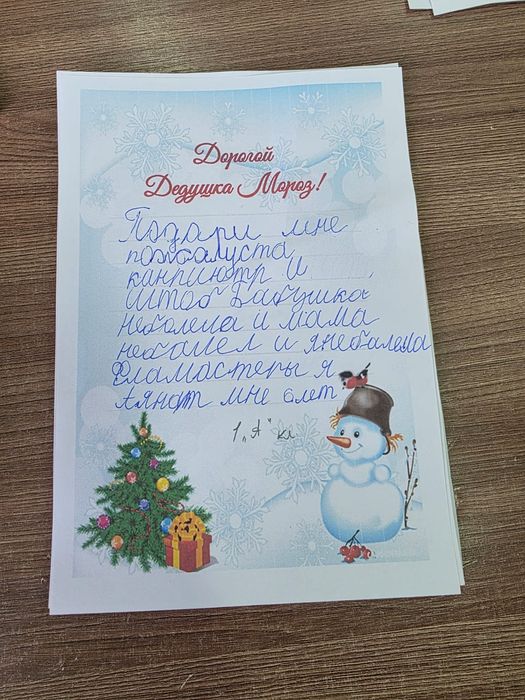 Дорогой
Дедушка Мороз!
Подари мне
пожалуста
канпиютр и
Штоб Бабушка
неболела и мама
небалел и янеболела
Фламастеры я
мне
1 „А" кл